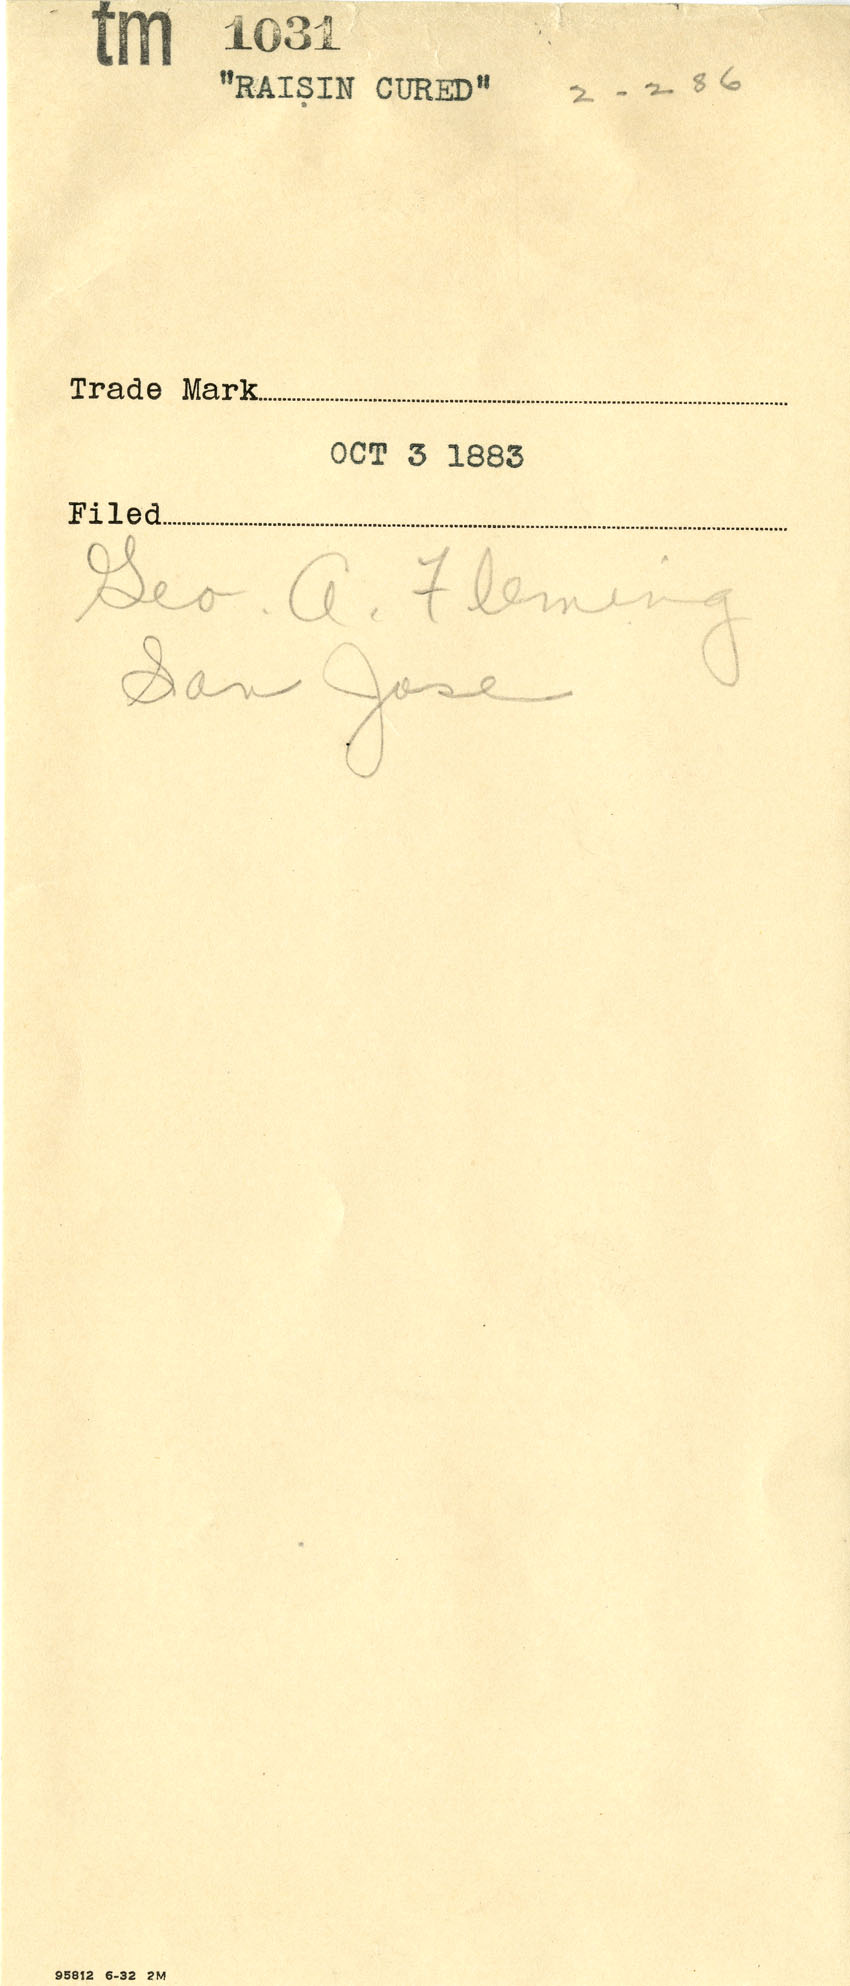 tm 1031
"RAISIN CURED" 2-286
Trade Mark
OCT 3 1883
Filed
Geo. A. Fleming
San Jose
95812 6-32 2M